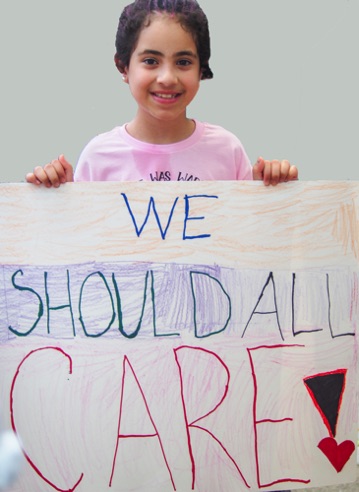 WAS WAR
WE
SHOULD ALL
CARE!